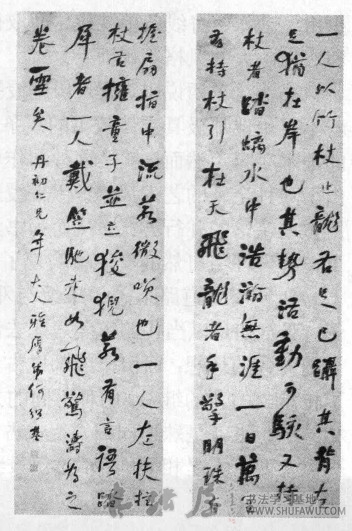 一人以竹杖止龍右足已躡其背左
足猶在岸也其勢活動可駭又持
杖者踏
水中浩瀚無涯一日萬里
右持杖引柱天飛龍者手擎明珠右
握扇指中流若微嘆也一人左扶
杖右擁童子並立狻猊若有言語
犀者一人戴笠馳走如飛驚濤為之
卷雪矣
丹初仁兄年大人雅屬弟何紹基
书法学习基地